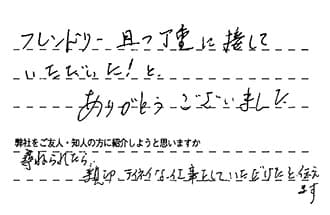 フレンドリー且つ丁重に接して
いただいた！と、
ありがとうございました
弊社をご友人・知人の方に紹介しようと思いますか
尋ねられたら、
親切、テイネイな仕事をしていただけたと伝え
ます